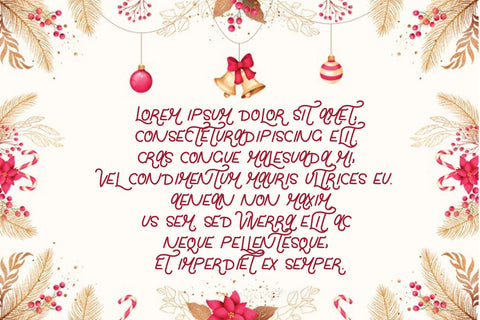 LOREM IPSUM DOLOR SIT AMET,
CONSECTETURADIPISCING ELIT
CRAS CONGUE MALESUADA MI,
VEL CONDIMENTUM MAURIS ULTRICES EU.
AENEAN NON MAXIM
US SEM, SED VIVERRA ELIT AC
NEQUE PELLENTESQUE,
ET IMPERDIET EX SEMPER